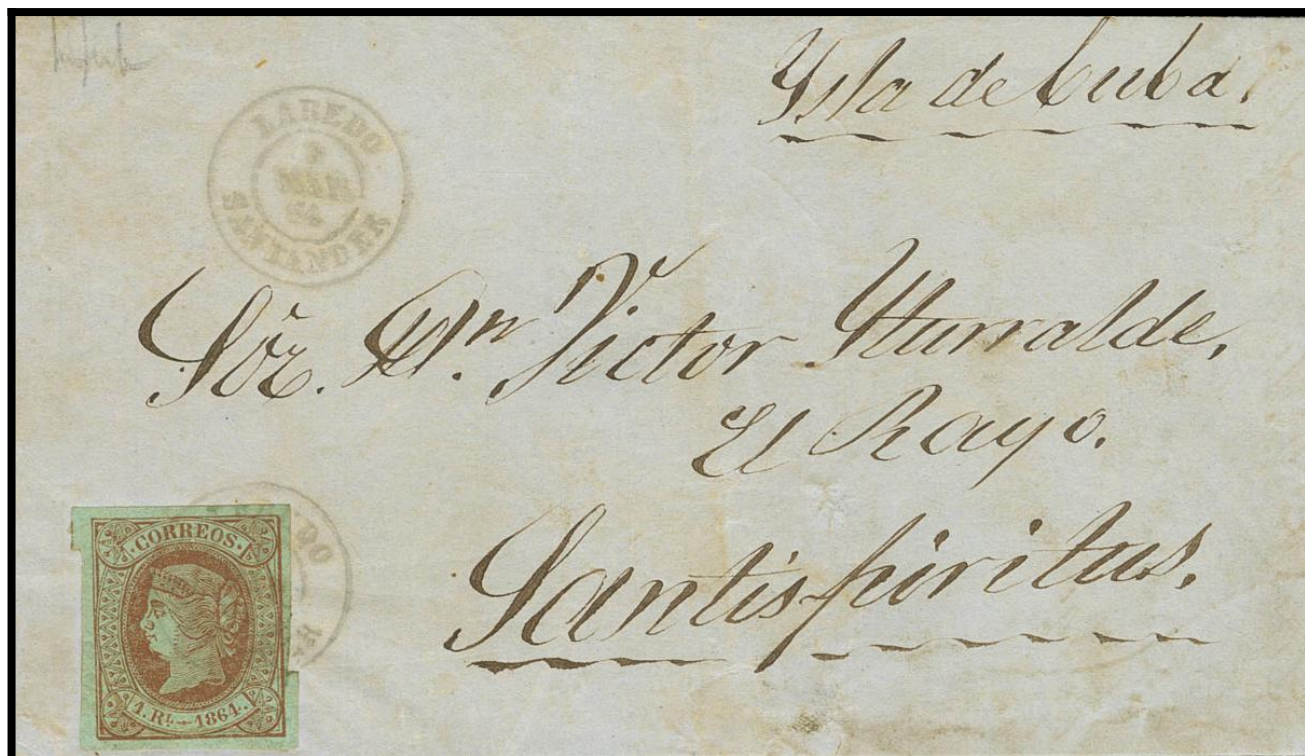 Ysla de Cuba.
LAREDO
MAR
64
SANTANDER
Sör. Dn. Victor Yturralde,
El Rayo.
Santispiritus.
CORREOS
1. Rl. - 1864.